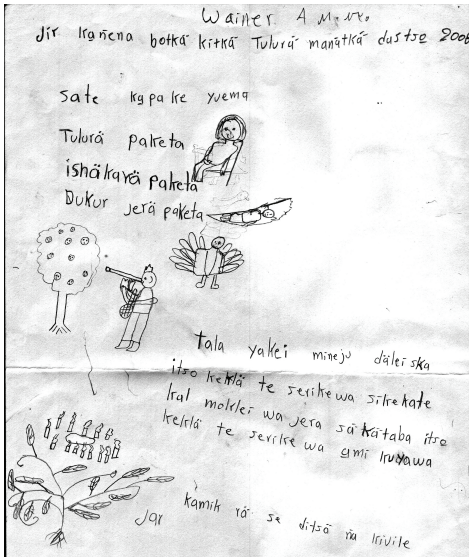 Wainer A m.
Jir kanena botkä kitkä Tulurä manatkä dustso 2006
sate kapake yuema
Tulurä paketa
ishäkärä paketa
Dukur jerä paketa
tala yakei mineju dälei ska
itso keklä te serikewa sikekate
kal moklei wa jera sä kätaba itso
keklä te serike wa ami kuyawa
Jar kamik rä se ditsä ña kivile